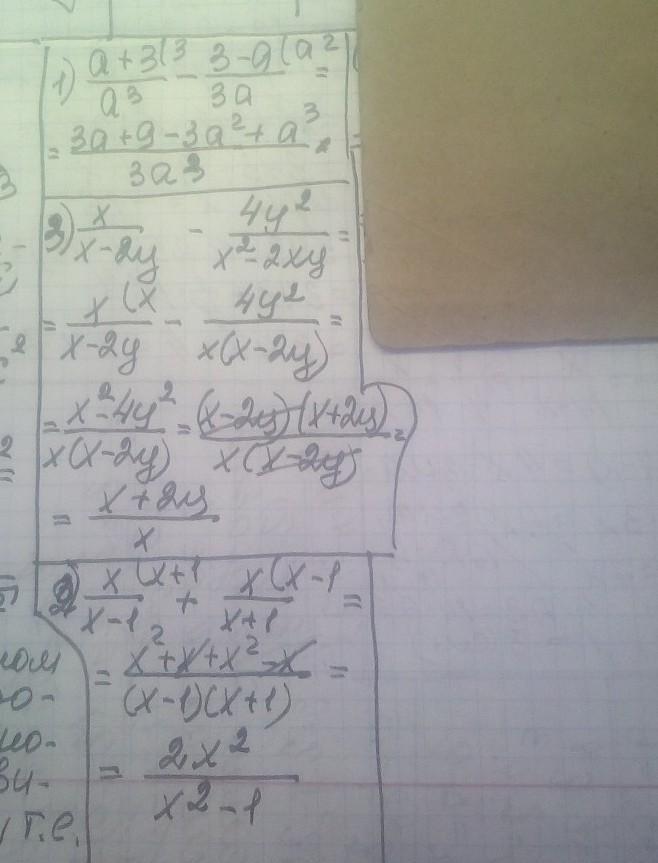 1) (a+3(3)/a³ − (3−a(a²)/3a =
= (3a+9−3a²+a³)/3a³
3) x/(x−2y) − 4y²/(x²−2xy) =
= x(x/(x−2y) − 4y²/(x(x−2y)) =
= (x²−4y²)/(x(x−2y)) = ((x−2y)(x+2y))/(x(x−2y)) =
= (x+2y)/x
2) x(x+1/(x−1) + x(x−1/(x+1) =
= (x²+x+x²−x)/((x−1)(x+1)) =
= 2x²/(x²−1)
ном
т.е.